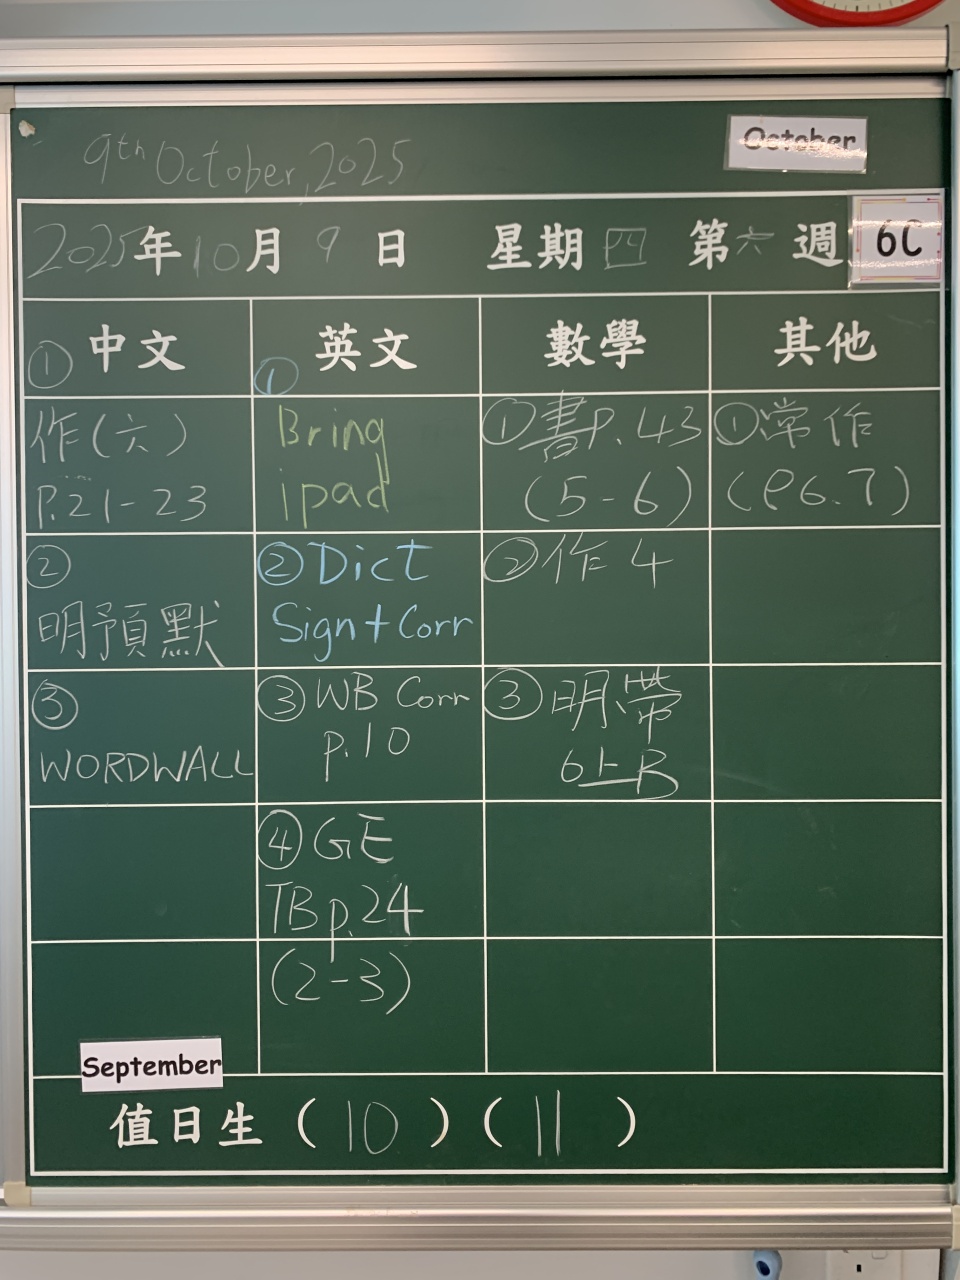 9th October, 2025
October
2025年10月9日 星期四 第六週
6C
① 中文
作(六)
P.21-23
②
明預默
③
WORDWALL
① 英文
Bring
ipad
② Dict
Sign+Corr
③ WB Corr
p.10
④ GE
TB p.24
(2-3)
數學
① 書P.43
(5-6)
② 作4
③ 明帶
6上B
其他
① 常作
(P6.7)
September
值日生 (10) (11)